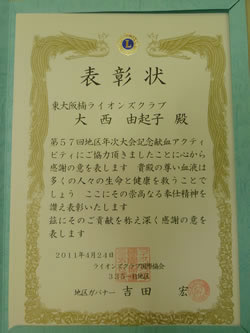 表彰状
東大阪楠ライオンズクラブ
大西 由起子 殿
第57回地区年次大会記念献血アクティ
ビティにご協力頂きましたことに心から
感謝の意を表します 貴殿の尊い血液は
多くの人々の生命と健康を救うことで
しょう ここにその崇高なる奉仕精神を
讃え表彰いたします
益にそのご貢献を称え深く感謝の意を
表します
2011年4月24日
ライオンズクラブ国際協会
335-B地区
地区ガバナー 吉田 宏